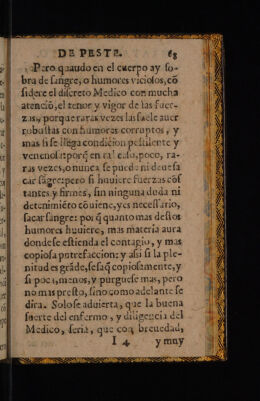 DE PESTE. 68
Pero quando en el cuerpo ay so-
bra de sangre, o humores viciosos, cõ
sidere el discreto Medico con mucha
atenciõ, el tenor y vigor de las fuer-
zas, porque raras vezes las suele auer
robustas con humores corruptos, y
mas si se llega condicion pestilente y
venenosa: porq̃ en tal caso, poco, ra-
ras vezes, o nunca se puede ni deue sa
car sãgre: pero si huuiere fuerzas cõs
tantes y firmes, sin ninguna duda ni
detenimiẽto cõuiene, y es necessario,
sacar sangre: por q̃ quanto mas destos
humores huuiere, mas materia aura
donde se estienda el contagio, y mas
copiosa putrefaccion: y assi si la ple-
nitud es grãde, se saq̃ copiosamente, y
si poca, menos, y purguese mas, pero
no mas presto, sino como adelante se
dira. Solo se aduierta, que la buena
suerte del enfermo, y diligencia del
Medico, seria, que con breuedad,
I 4 y muy